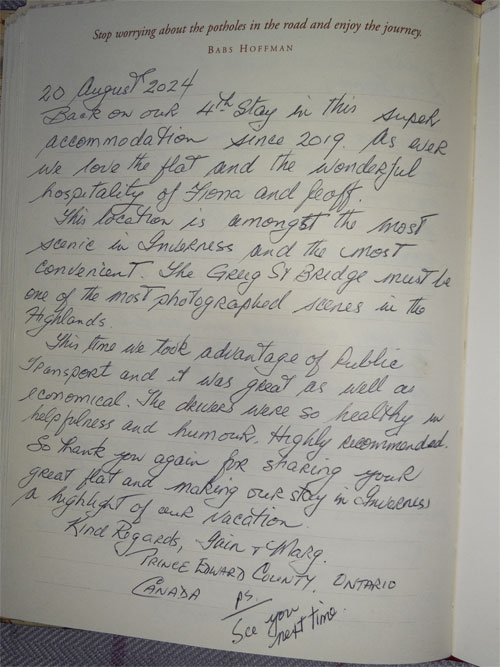 Stop worrying about the potholes in the road and enjoy the journey.
BABS HOFFMAN
20 August 2024
Back on our 4th Stay in this super
accommodation since 2019. As ever
we love the flat and the wonderful
hospitality of Fiona and Geoff.
This location is amongst the most
scenic in Inverness and the most
convenient. The Greig St Bridge must be
one of the most photographed scenes in the
Highlands.
This time we took advantage of Public
Transport and it was great as well as
economical. The drivers were so healthy in
helpfulness and humour. Highly recommended.
So thank you again for sharing your
great flat and making our stay in Inverness
a highlight of our vacation.
Kind Regards, Iain & Marg.
PRINCE EDWARD COUNTY, ONTARIO
CANADA
ps.
See you
next time.